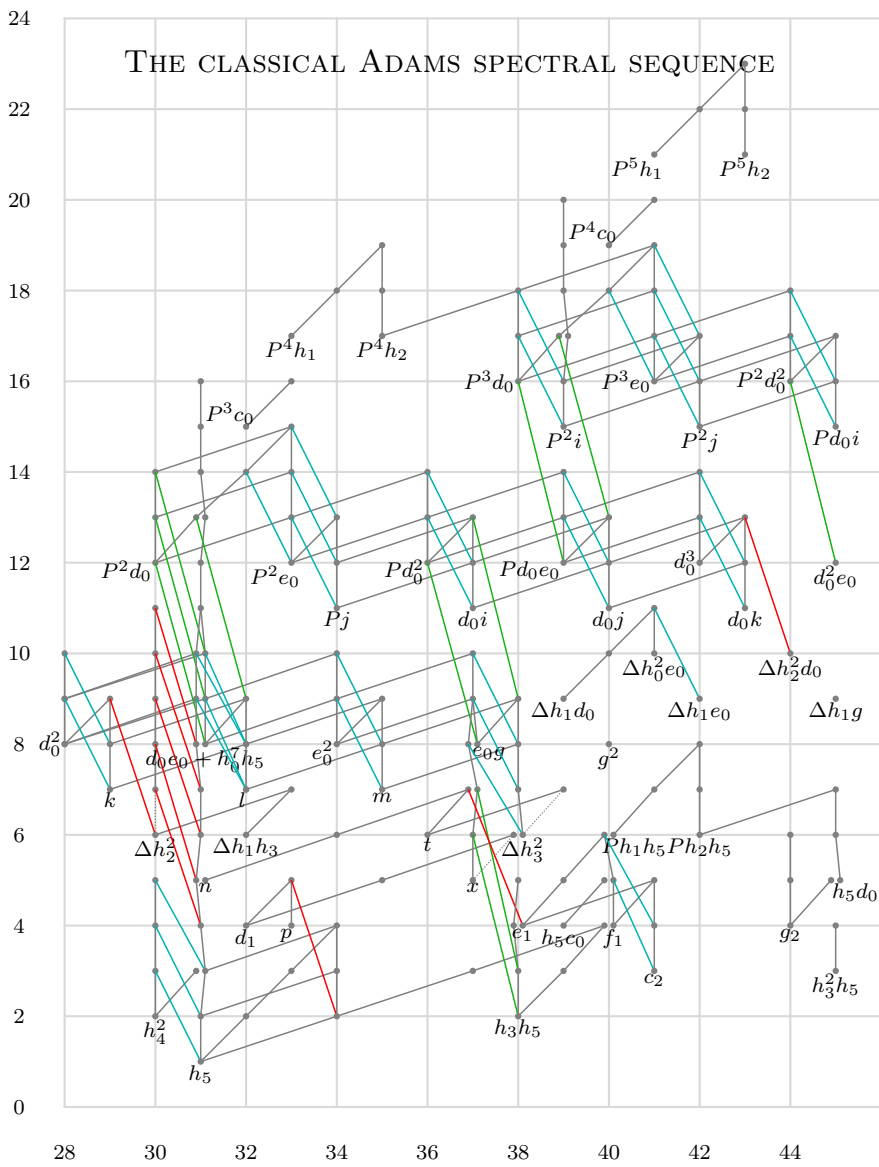 24
THE CLASSICAL ADAMS SPECTRAL SEQUENCE
22
P⁵h₁ P⁵h₂
20
P⁴c₀
18
P⁴h₁ P⁴h₂
P³d₀ P³e₀ P²d₀²
16
P³c₀
P²i P²j Pd₀i
14
12
P²d₀ P²e₀ Pd₀² Pd₀e₀ d₀³ d₀²e₀
Pj d₀i d₀j d₀k
10
Δh₀²e₀ Δh₂²d₀
Δh₁d₀ Δh₁e₀ Δh₁g
8
d₀² d₀e₀ + h₀⁷h₅ e₀² e₀g g²
k l m
6
Δh₂² Δh₁h₃ t Δh₃² Ph₁h₅ Ph₂h₅
n x h₅d₀
4
d₁ p e₁ h₅c₀ f₁ g₂
c₂ h₃²h₅
2
h₄² h₃h₅
h₅
0
28 30 32 34 36 38 40 42 44